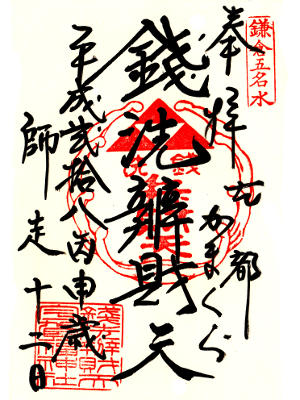 鎌倉五名水
奉拝 古都
かまくら
錢洗辨財天
平成貮拾八丙申歳
師走十二日